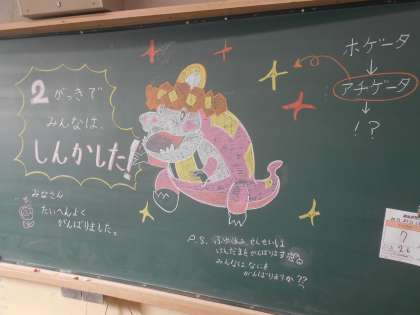 2がっきで
みんなは、
しんかした!
みなさん
たいへんよく
がんばりました。
ホゲータ
↓
アチゲータ
↓
!?
P.S. ふゆやすみ、せんせいは
けんだまをがんばります。
みんなはなにを
がんばりますか??
7